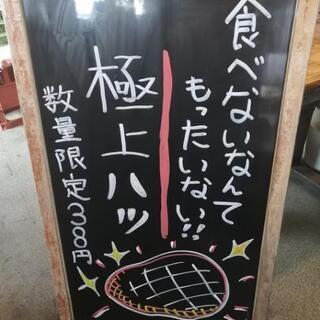 食べないなんて
もったいない!!
極上ハツ
数量限定300円